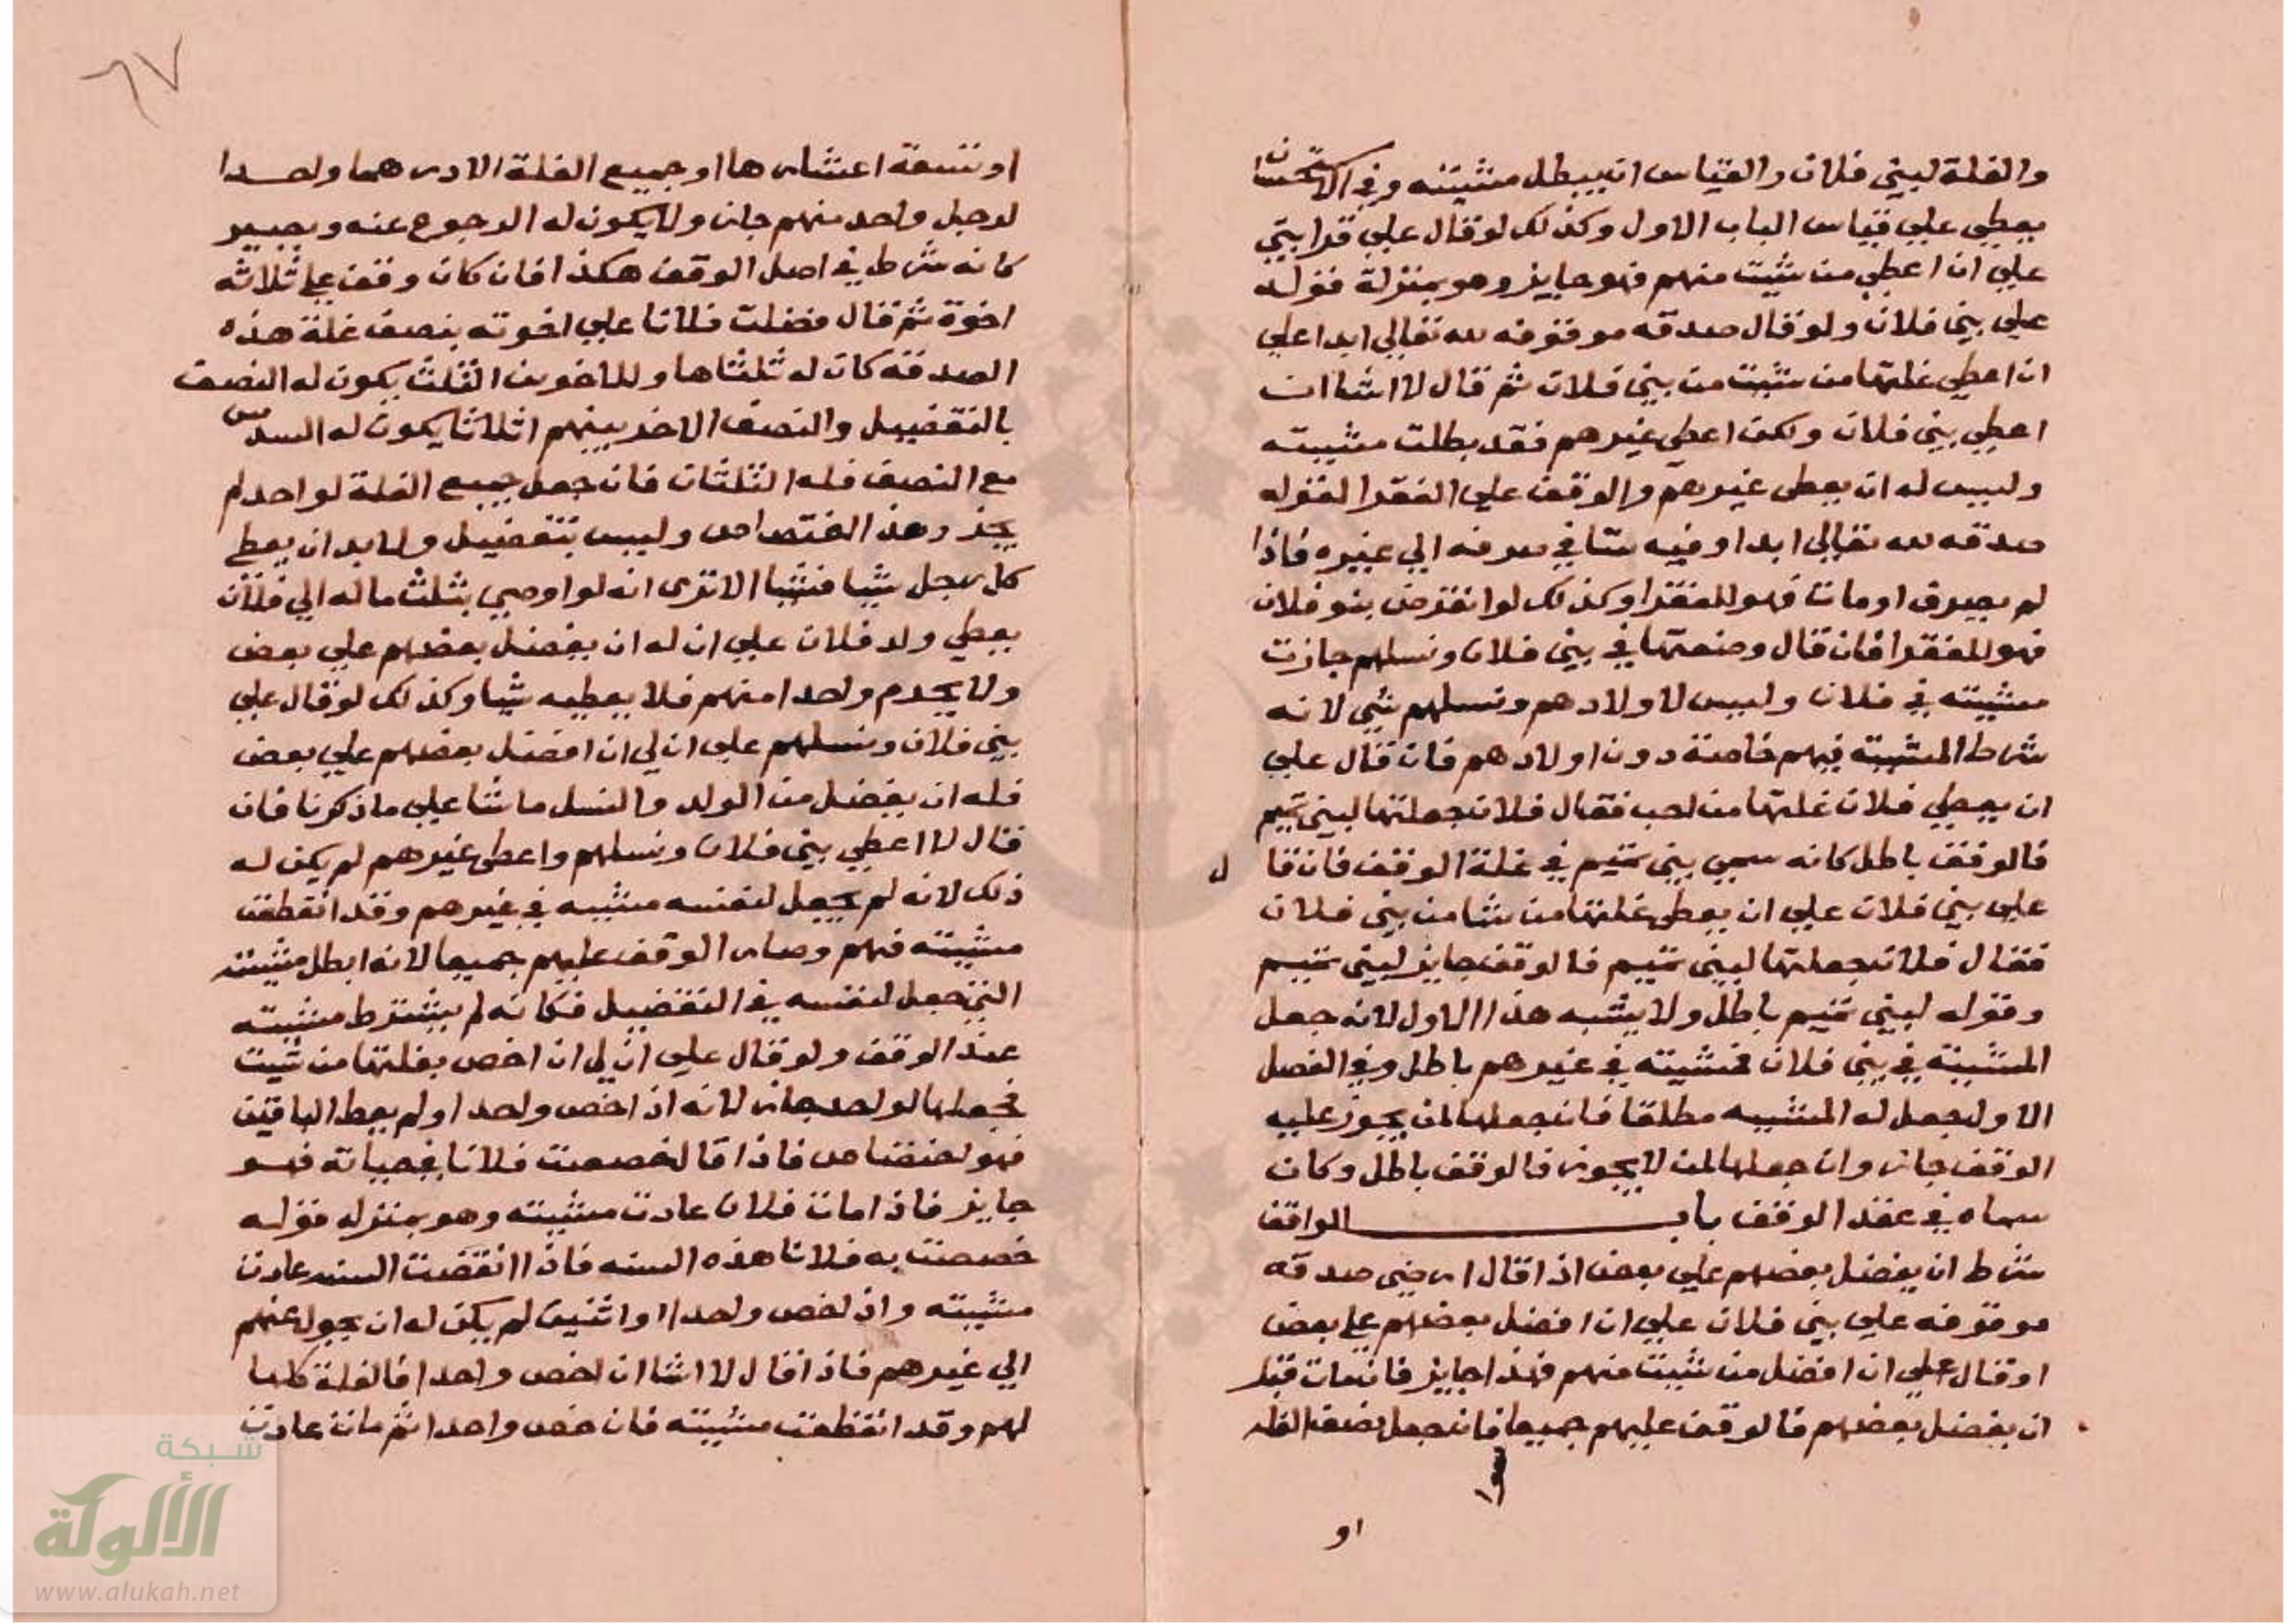 والغلة لبني فلان والقياس ان يبطل مشيته وفي الاستحسان
يعطي علي قياس الباب الاول وكذلك لو قال علي قرابتي
علي ان اعطي من شيت منهم فهو جايز وهو بمنزلة قوله
علي بني فلان ولو قال صدقه موقوفه لله تعالي ابدا علي
ان اعطي غلتها من شيت من بني فلان ثم قال لا اشا ان
اعطي بني فلان ولكن اعطي غيرهم فقد بطلت مشيته
وليس له ان يعطي غيرهم والوقف علي الفقرا لقوله
صدقه لله تعالي ابدا وفيه شا في صرفه الي غيره فاذا
لم يصرف او مات فهو للفقرا وكذلك لو انقرض بنو فلان
فهو للفقرا فان قال وضعتها في بني فلان ونسلهم جازت
مشيته في فلان وليس لاولادهم ونسلهم شي لانه
شرط المشيته فيهم خاصة دون اولادهم فان قال علي
ان يعطي فلان غلتها من احب فقال فلان جعلتها لبني تميم
فالوقف باطل كانه سمي بني تميم في غلة الوقف فان قال
علي بني فلان علي ان يعطي غلتها من شا من بني فلان
فقال فلان جعلتها لبني تميم فالوقف جايز لبني تميم
وقوله لبني تميم باطل ولا يشبه هذا الاول لانه جعل
المشيته في بني فلان فمشيته في غيرهم باطل وفي الفصل
الاول جعل له المشييه مطلقا فان جعلها لمن يجوز عليه
الوقف جاز وان جعلها لمن لا يجوز فالوقف باطل وكان
سماه في عقد الوقف باب الواقف
شرط ان يفضل بعضهم علي بعض اذا قال ارضي صدقه
موقوفه علي بني فلان علي ان افضل بعضهم علي بعض
او قال علي ان افضل من شيت منهم فهذا جايز فان مات قبل
ان يفضل بعضهم فالوقف عليهم جميعا فان جعل نصف الغله
او
٦٧
او تسعة اعشارها او جميع الغلة الا درهما واحدا
لرجل واحد منهم جاز ولا يكون له الرجوع عنه ويصير
كانه شرط في اصل الوقف هكذا فان كان وقف علي ثلاثه
اخوة ثم قال فضلت فلانا علي اخوته بنصف غلة هذه
الصدقه كان له ثلثاها وللاخوين الثلث يكون له النصف
بالتفضيل والنصف الاخر بينهم اثلاثا يكون له السدس
مع النصف فله الثلثان فان جعل جميع الغلة لواحد لم
يجز وهذا اختصاص وليس بتفضيل ولا بد ان يعطي
كل رجل شيا فشيا الا ترى انه لو اوصي بثلث ماله الي فلان
يعطي ولد فلان علي ان له ان يفضل بعضهم علي بعض
ولا يحرم واحدا منهم فلا يعطيه شيا وكذلك لو قال علي
بني فلان ونسلهم علي ان لي ان افضل بعضهم علي بعض
فله ان يفضل من الولد والنسل ما شا علي ما ذكرنا فان
قال لا اعطي بني فلان ونسلهم واعطي غيرهم لم يكن له
ذلك لانه لم يجعل لنفسه مشييه في غيرهم وقد انقطعت
مشيته فيهم وصار الوقف عليهم جميعا لانه ابطل مشيته
التي جعل لنفسه في التفضيل فكانه لم يشترط مشيته
عند الوقف ولو قال علي ان لي ان اخص بغلتها من شيت
فجعلها لواحد جاز لانه اذا خص واحدا ولم يعط الباقين
فهو اختصاص فاذا قال خصصت فلانا بغصباته فهو
جايز فاذا مات فلان عادت مشيته وهو بمنزله قوله
خصصت به فلانا هذه السنه فاذا انقضت السنه عادت
مشيته وان خص واحدا او اثنين لم يكن له ان يحوله عنهم
الي غيرهم فاذا قال لا اشا ان اخص واحدا فالغلة كلها
لهم وقد انقطعت مشيته فان خص واحدا ثم مات عادت
شبكة
الألوكة
www.alukah.net